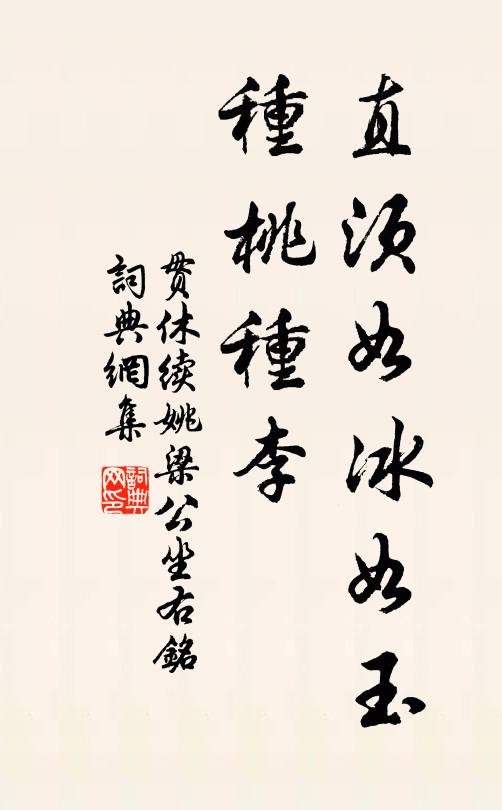 直須如冰如玉
種桃種李
貫休续姚梁公坐右銘
詞典網集
詞典網印